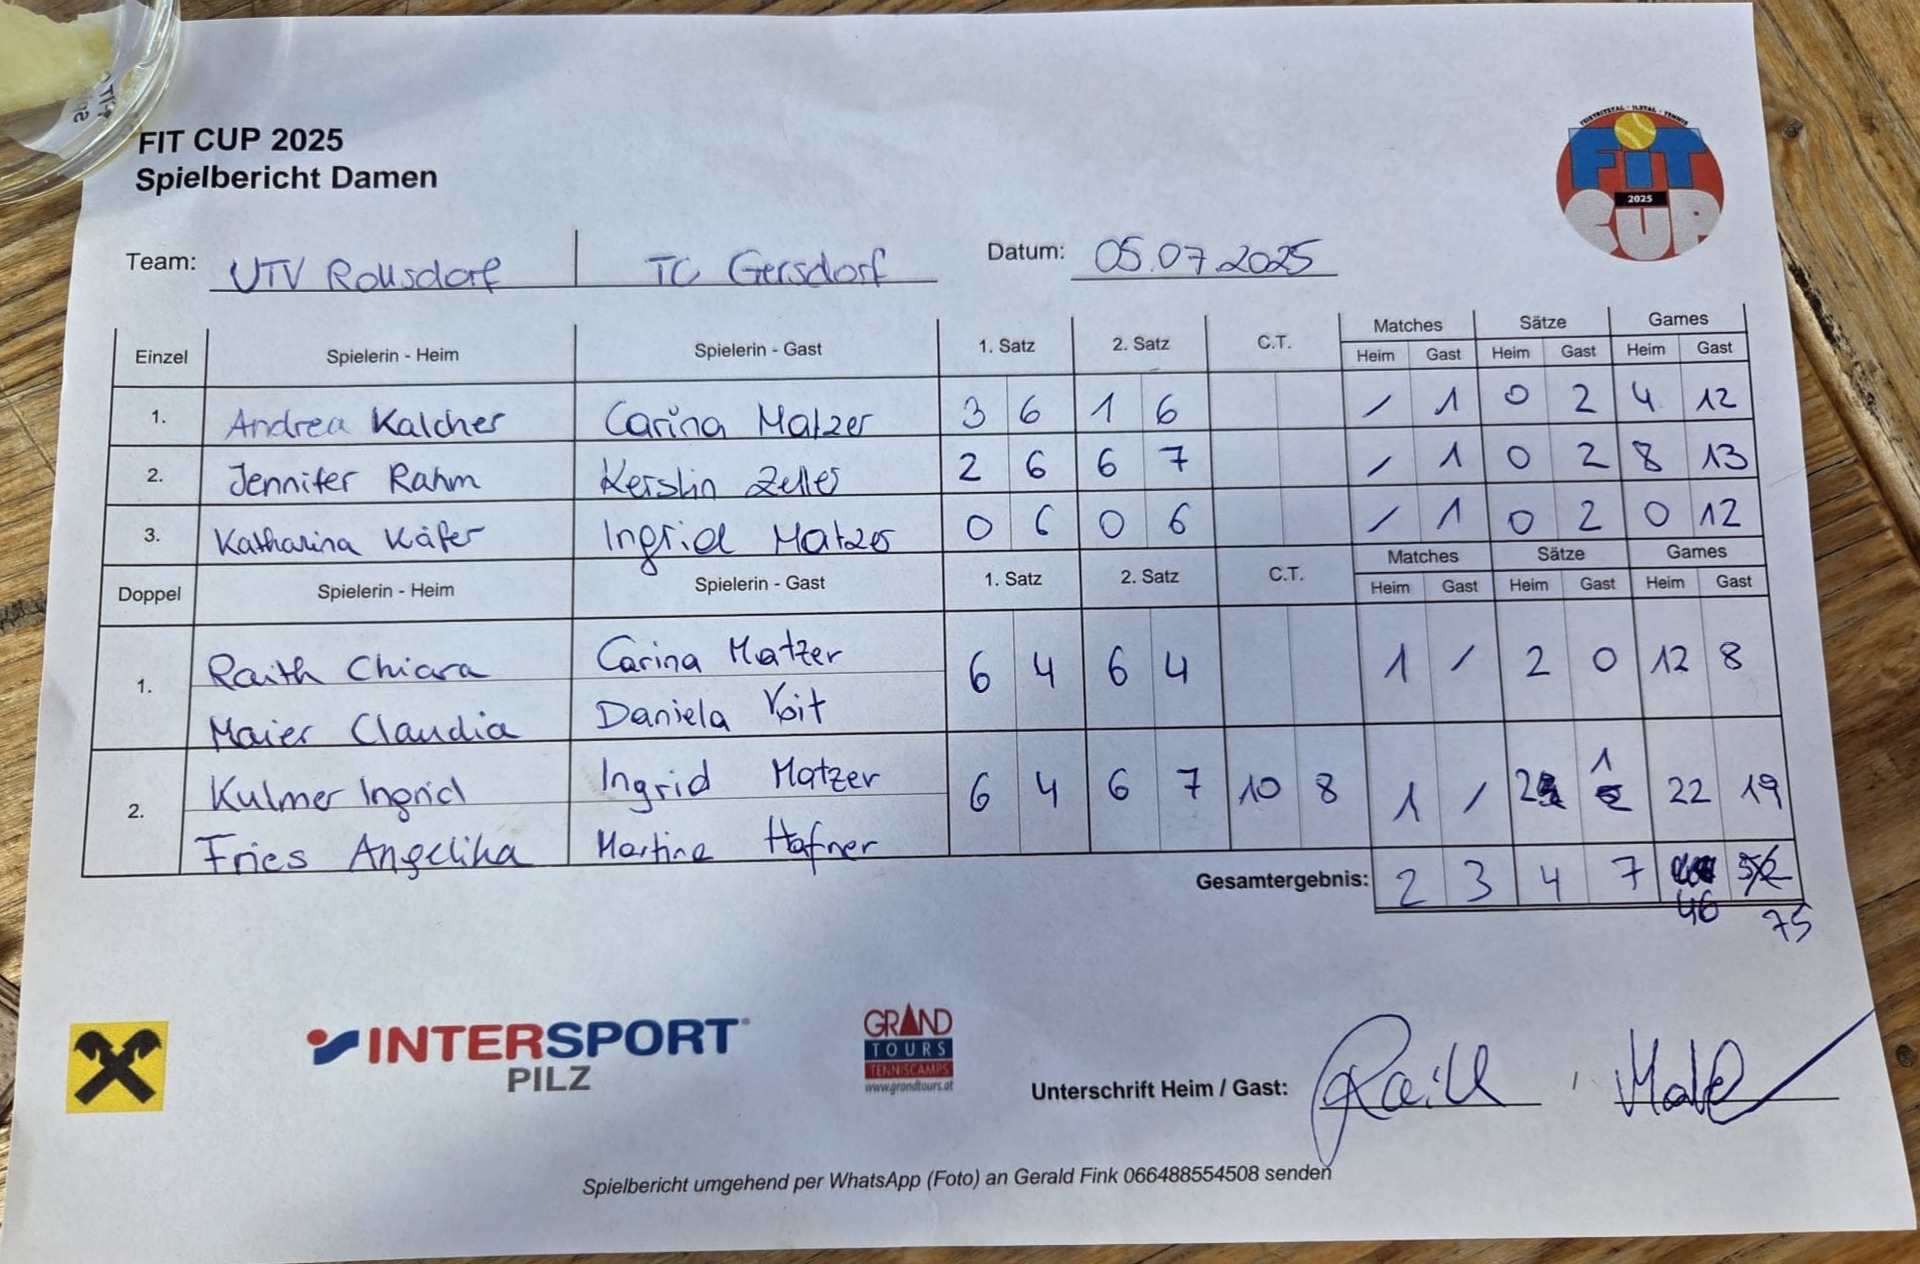 FIT CUP 2025
Spielbericht Damen
FEISTRITZTAL - ILZTAL - TENNIS
FiT
2025
CUP
Team: UTV Rollsdorf TC Gersdorf Datum: 05.07.2025
Einzel Spielerin - Heim Spielerin - Gast 1. Satz 2. Satz C.T. Matches Sätze Games
Heim Gast Heim Gast Heim Gast
1. Andrea Kalcher Carina Matzer 3 6 1 6 / 1 0 2 4 12
2. Jennifer Rahm Kerstin Zeller 2 6 6 7 / 1 0 2 8 13
3. Katharina Käfer Ingrid Matzer 0 6 0 6 / 1 0 2 0 12
Doppel Spielerin - Heim Spielerin - Gast 1. Satz 2. Satz C.T. Matches Sätze Games
Heim Gast Heim Gast Heim Gast
1. Raith Chiara Carina Matzer 6 4 6 4 1 / 2 0 12 8
Maier Claudia Daniela Voit
2. Kulmer Ingrid Ingrid Matzer 6 4 6 7 10 8 1 / 2 1 22 19
Fries Angelika Martina Hafner
Gesamtergebnis: 2 3 4 7 52
46 75
INTERSPORT
PILZ
GRAND
TOURS
TENNISCAMPS
www.grandtours.at
Unterschrift Heim / Gast: Raith /
Spielbericht umgehend per WhatsApp (Foto) an Gerald Fink 066488554508 senden